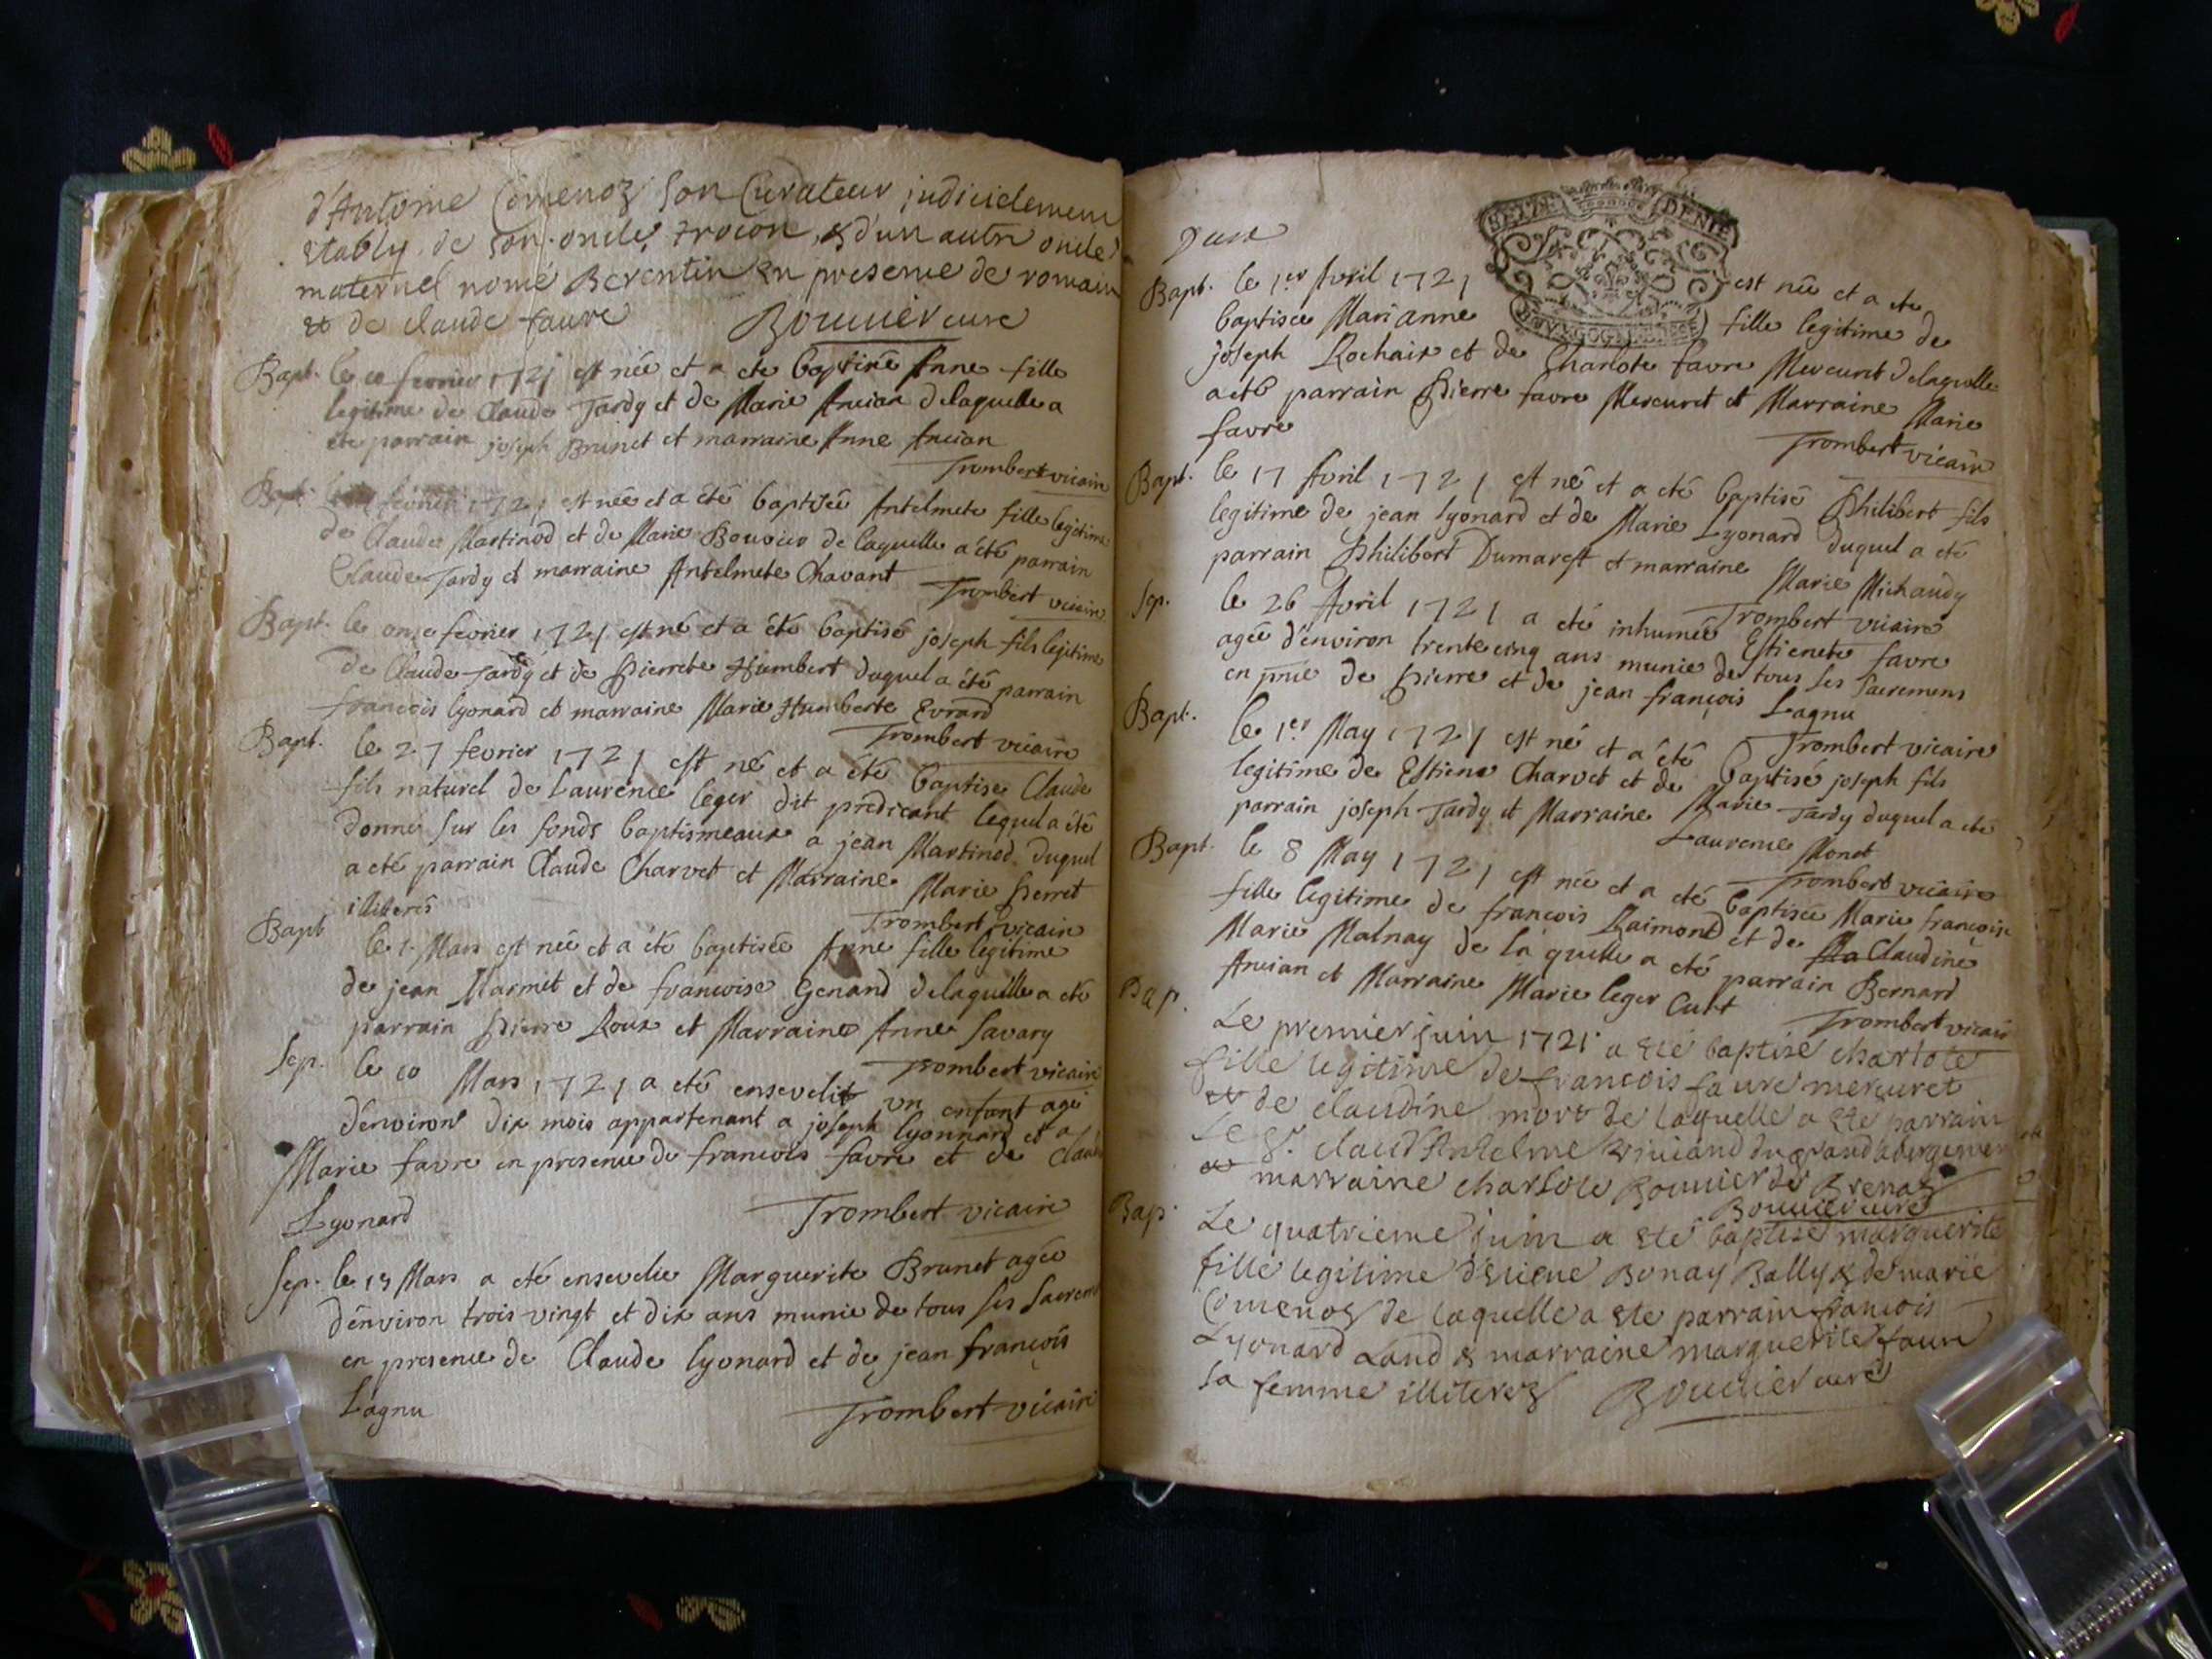 d'Antoine Comenoz son Curateur judicielement
estably de son oncle trocon, & d'un autre oncle
maternel nomé Berentin en presence de romain
et de claude faure Bouuier curé
Bapt. le 10 fevrier 1721 est née et a ete baptisée Anne fille
legitime de Claude Tardy et de Marie Ancian delaquelle a
ete parrain joseph Brunet et marraine Anne Ancian
Trombert vicaire
Bapt. fevrier 1721 est née et a été baptisée Antelmete fille legitime
de Claude Martinod et de Marie Bouvier de laquelle a été parrain
Claude Tardy et marraine Antelmete Chavant Trombert vicaire
Bapt. le onze fevrier 1721 est né et a été baptisé joseph fils legitime
de Claude Tardy et de Pierrete Humbert duquel a été parrain
françois lyonard et marraine Marie Humberte Evrard
Trombert vicaire
Bapt. le 27 fevrier 1721 est né et a été baptisé Claude
fils naturel de Laurence leger dit predicant lequel a été
donné sur les fonds baptismeaux a jean Martinod duquel
a eté parrain Claude Charvet et Marraine Marie Perret
illiterés Trombert vicaire
Bapt le 1. Mars est née et a été baptisée Anne fille legitime
de jean Marmit et de francoise Genand delaquelle a eté
parrain Pierre Roux et Marraine Anne Savary
Trombert vicaire
Sep. le 10 Mars 1721 a eté ensevelit un enfant agé
d'environ dix mois appartenant a joseph lyonnard et a
Marie favre en presence de francois favre et de Claude
Lyonard Trombert vicaire
Sep. le 13 Mars a eté ensevelie Marguerite Brunet agée
d'environ trois vingt et dix ans munie de tous ses Sacrem
en presence de Claude lyonard et de jean françois
Lagnu Trombert vicaire
SEIZE DENIE
Deux
Bapt. le 1er Avril 1721 est née et a ete
baptisée Marianne fille legitime de
joseph Rochaix et de Charlote favre Mercuret delaquelle
a eté parrain Pierre favre Mercuret et Marraine Marie
favre Trombert vicaire
Bapt. le 17 Avril 1721 est né et a eté baptisé Philibert fils
legitime de jean lyonard et de Marie Lyonard duquel a eté
parrain Philibert Dumarest et marraine Marie Michaudy
Trombert vicaire
Sep. le 26 Avril 1721 a eté inhumée Estienete favre
agée d'environ trente cinq ans munie de tous ses Sacremens
en pnce de Pierre et de jean françois Lagnu
Trombert vicaire
Bapt. le 1er May 1721 est né et a été baptisé joseph fils
legitime de Estiene Charvet et de Marie Tardy duquel a eté
parrain joseph Tardy et Marraine Laurence Monet
Trombert vicaire
Bapt. le 8 May 1721 est née et a eté baptisée Marie françoise
fille legitime de francois Raimond et de Ma Claudine
Marie Malnay de la quelle a eté parrain Bernard
Ancian et Marraine Marie leger Cutt Trombert vicair
Bap. Le premier juin 1721 a eté baptisé charlote
fille legitime de francois faure mercuret
et de claudine mort de laquelle a ete parrain
Le Sr. claud Antelme
et marraine charlote Bouuier de Brenaz
Bouuier curé
Bap. Le quatrieme juin a eté baptisé marguerite
fille legitime d'etiene Bonay Bally & de marie
Comenoz de laquelle a ete parrain francois
Lyonard Land & marraine marguerite faure
sa femme illiterez Bouuier curé